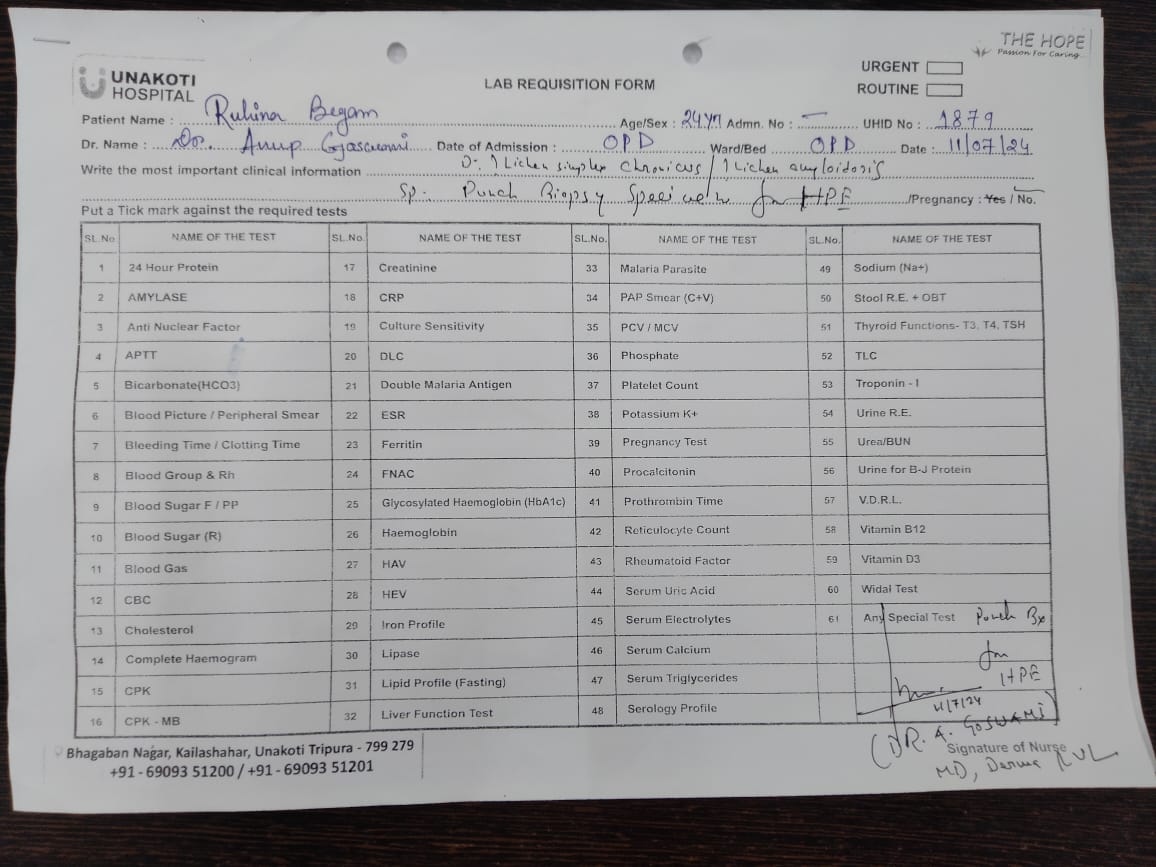 THE HOPE
Passion For Caring...
UNAKOTI
HOSPITAL
LAB REQUISITION FORM
URGENT
ROUTINE
Patient Name : Ruhina Begam Age/Sex : 24y Admn. No : — UHID No : 1879
Dr. Name : Dr. Anup Goswami Date of Admission : OPD Ward/Bed OPD Date : 11/07/24
Write the most important clinical information Lichen simplex chronicus / Lichen amyloidosis
Sp. Punch Biopsy Specimen for HPE /Pregnancy : Yes / No.
Put a Tick mark against the required tests
SL.No NAME OF THE TEST SL.No. NAME OF THE TEST SL.No. NAME OF THE TEST SL.No. NAME OF THE TEST
1 24 Hour Protein 17 Creatinine 33 Malaria Parasite 49 Sodium (Na+)
2 AMYLASE 18 CRP 34 PAP Smear (C+V) 50 Stool R.E. + OBT
3 Anti Nuclear Factor 19 Culture Sensitivity 35 PCV / MCV 51 Thyroid Functions- T3, T4, TSH
4 APTT 20 DLC 36 Phosphate 52 TLC
5 Bicarbonate(HCO3) 21 Double Malaria Antigen 37 Platelet Count 53 Troponin - I
6 Blood Picture / Peripheral Smear 22 ESR 38 Potassium K+ 54 Urine R.E.
7 Bleeding Time / Clotting Time 23 Ferritin 39 Pregnancy Test 55 Urea/BUN
8 Blood Group & Rh 24 FNAC 40 Procalcitonin 56 Urine for B-J Protein
9 Blood Sugar F / PP 25 Glycosylated Haemoglobin (HbA1c) 41 Prothrombin Time 57 V.D.R.L.
10 Blood Sugar (R) 26 Haemoglobin 42 Reticulocyte Count 58 Vitamin B12
11 Blood Gas 27 HAV 43 Rheumatoid Factor 59 Vitamin D3
12 CBC 28 HEV 44 Serum Uric Acid 60 Widal Test
13 Cholesterol 29 Iron Profile 45 Serum Electrolytes 61 Any Special Test Punch Bx
14 Complete Haemogram 30 Lipase 46 Serum Calcium for
15 CPK 31 Lipid Profile (Fasting) 47 Serum Triglycerides HPE
16 CPK - MB 32 Liver Function Test 48 Serology Profile 11/7/24
(DR. A. GOSWAMI)
Signature of Nurse
MD, Derma
Bhagaban Nagar, Kailashahar, Unakoti Tripura - 799 279
+91 - 69093 51200 / +91 - 69093 51201